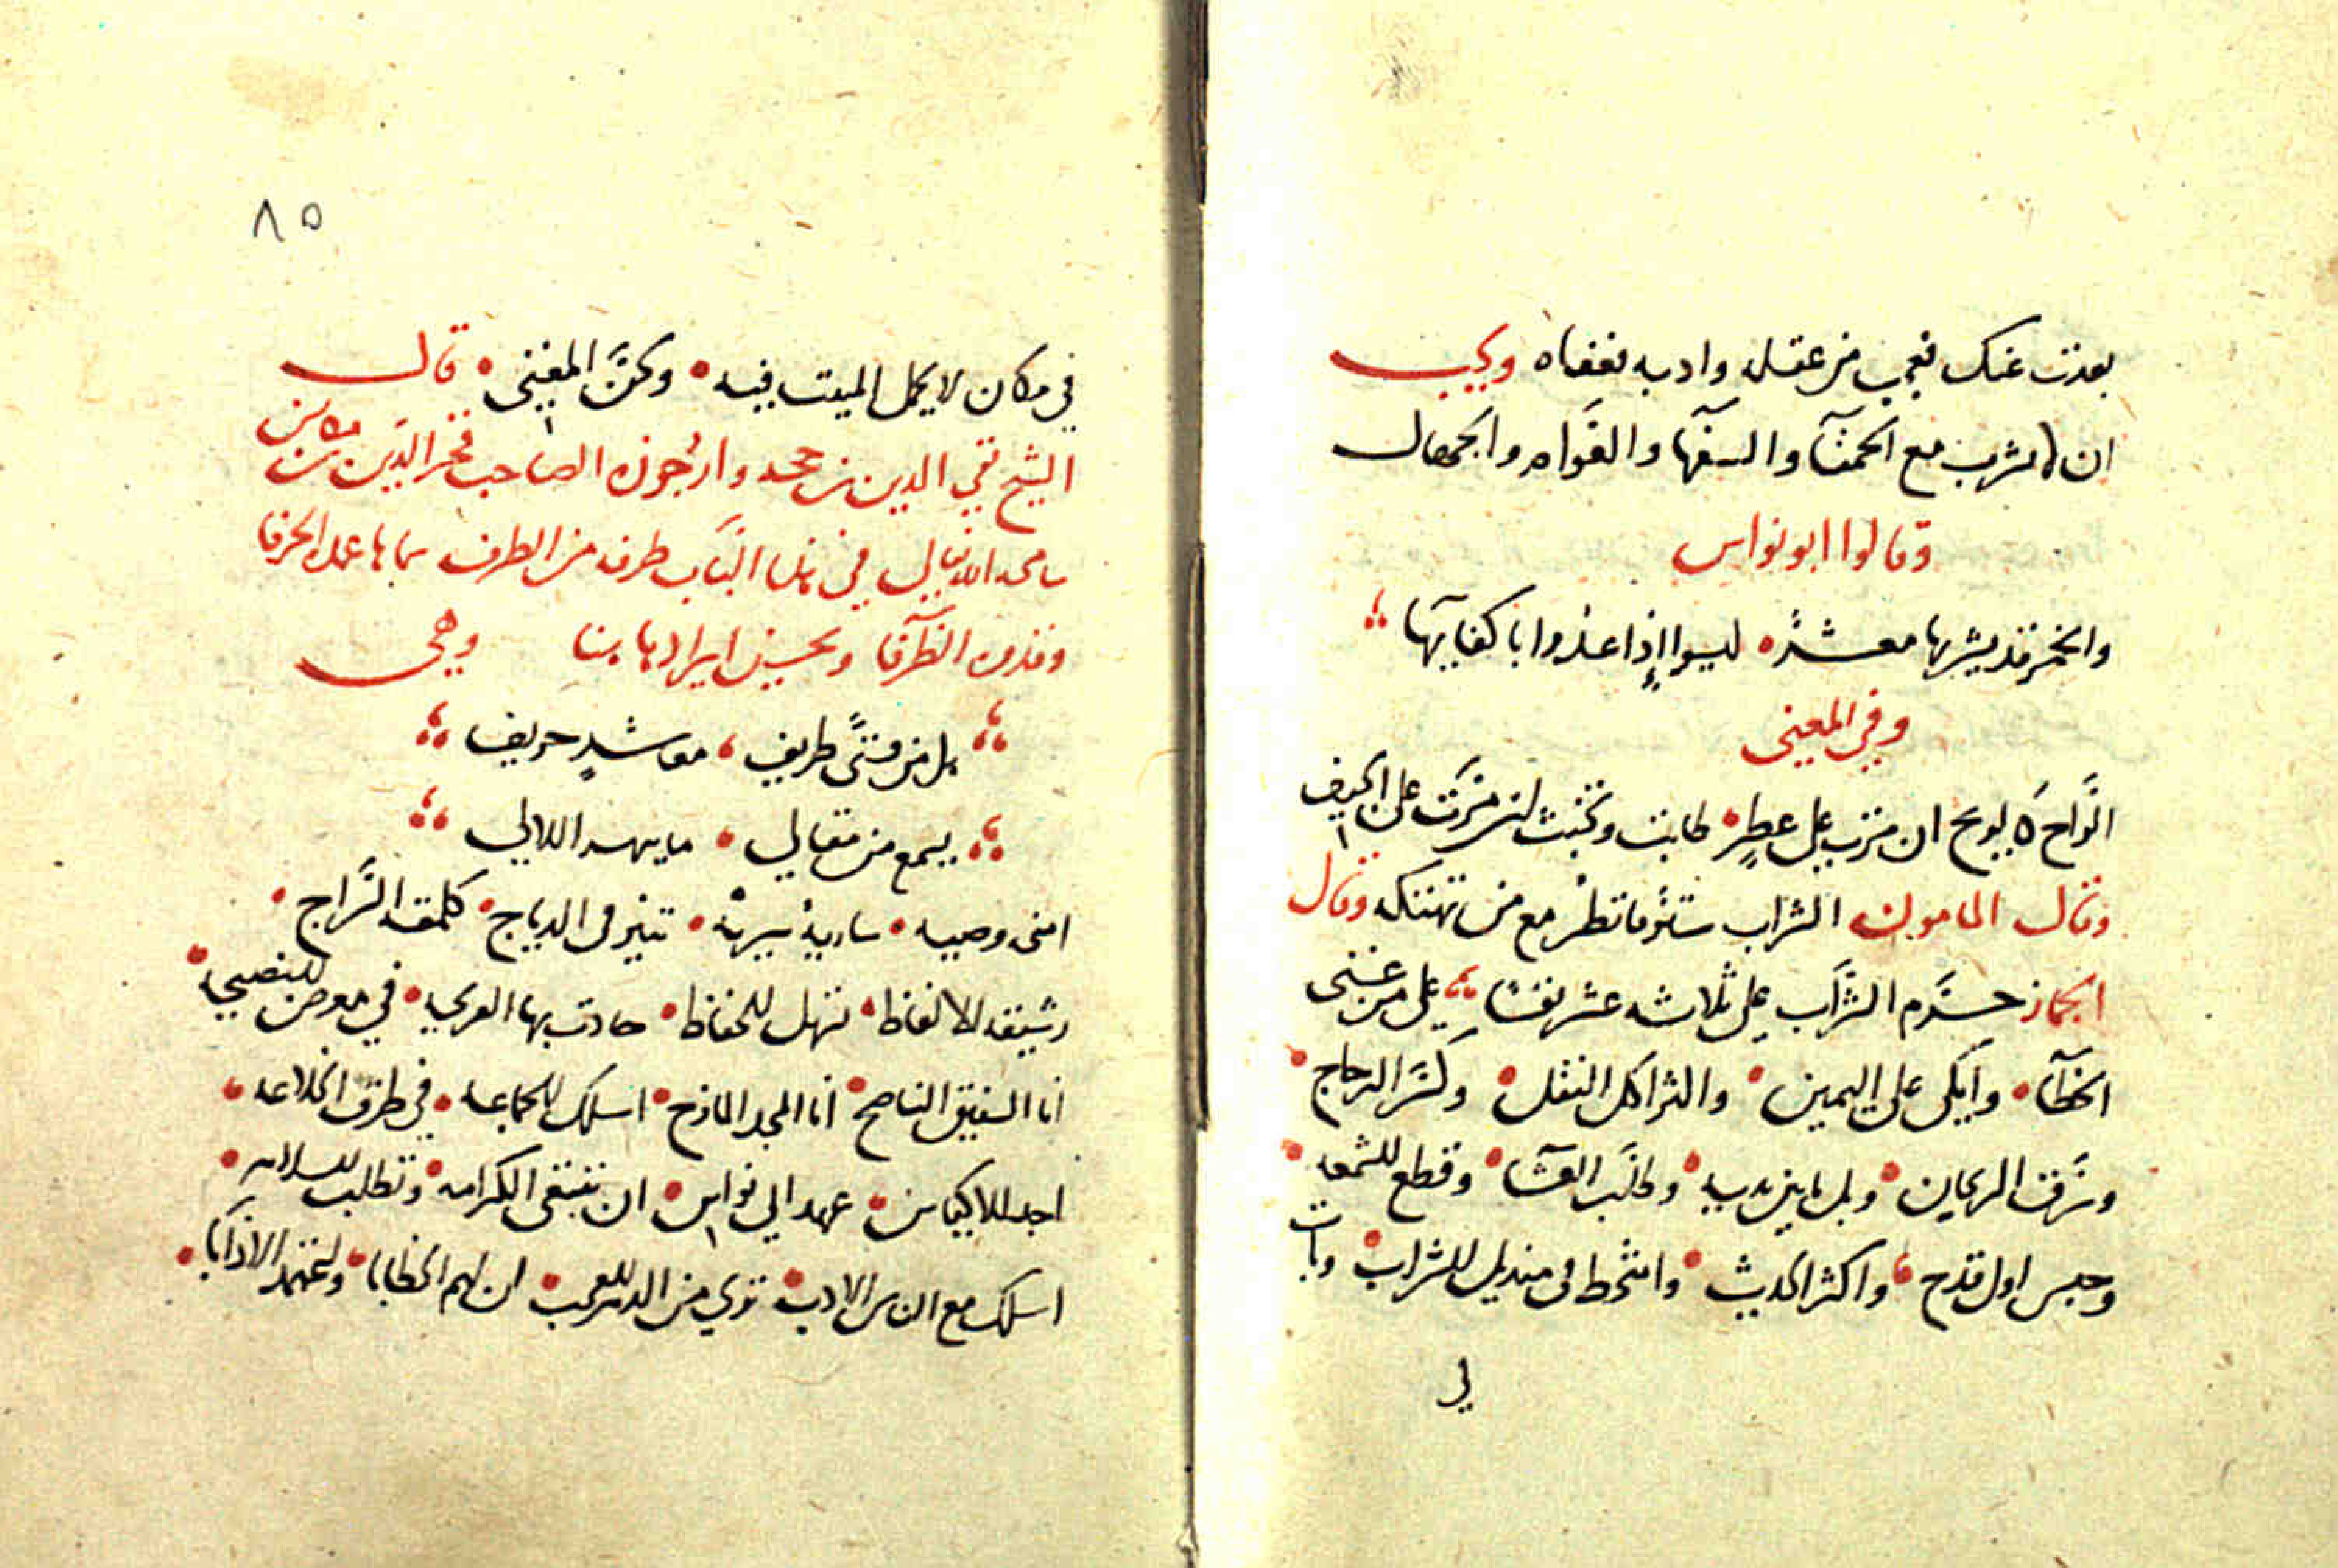 بعدت عنك تعجب من عقله وادبه نعفاه ويجب
ان لا يشرب مع الحمقآ والسفهآ والعوام والجهال
وقالوا ابو نواس
والخمر قد يشربها معشرٌ ليسوا اذا عدوا باكفايها
وفي المعنى
الراح كالريح ان مرت على عطرٍ طابت وتخبث ان مرت على الجيف
وقال المامون الشراب ستر فانظر مع من تهتكه وقال
الجماز حرم الشراب على ثلاثه عشر نفسًا على من غنى
الخطآ واتكى على اليمين واكثر اكل النقل وكسر الزجاج
وسرق الريحان وبل ما بين يديه وطلب العشا وقطع الشمعه
وحبس اول قدح واكثر الحديث وامتخط في منديل الشراب وبات
في
٨٥
في مكان لا يحمل المبيت فيه ولحن المغني قال
الشيخ تقي الدين بن حجه وارجوزة الصاحب فخر الدين بن مكانس
سامحه الله تعالى في هذا الباب طرفه من الطرف سماها عمدة الحرفا
وقدوة الظرفا ويحسن ايرادها هنا وهي
هل من فتىً ظريف معاشرٍ حريف
يسمع من مقالي ما يرخص اللالي
امنحه وصيه ساريةً سريه تنير في الدياج كلمعة السراج
رشيقة الالفاظ تسهل للحفاظ جادت بها القريحه في معرض النصيحه
انا الشفيق الناصح انا المجد المازح اسلك للجماعه في طرق الخلاعه
اجد للاكياس عهد ابي نواس ان تبتغي الكرامه وتطلب السلامه
اسلك مع الناس الادب ترى من الدهر العجب لن لهم الخطابا واعتمد الادآبا